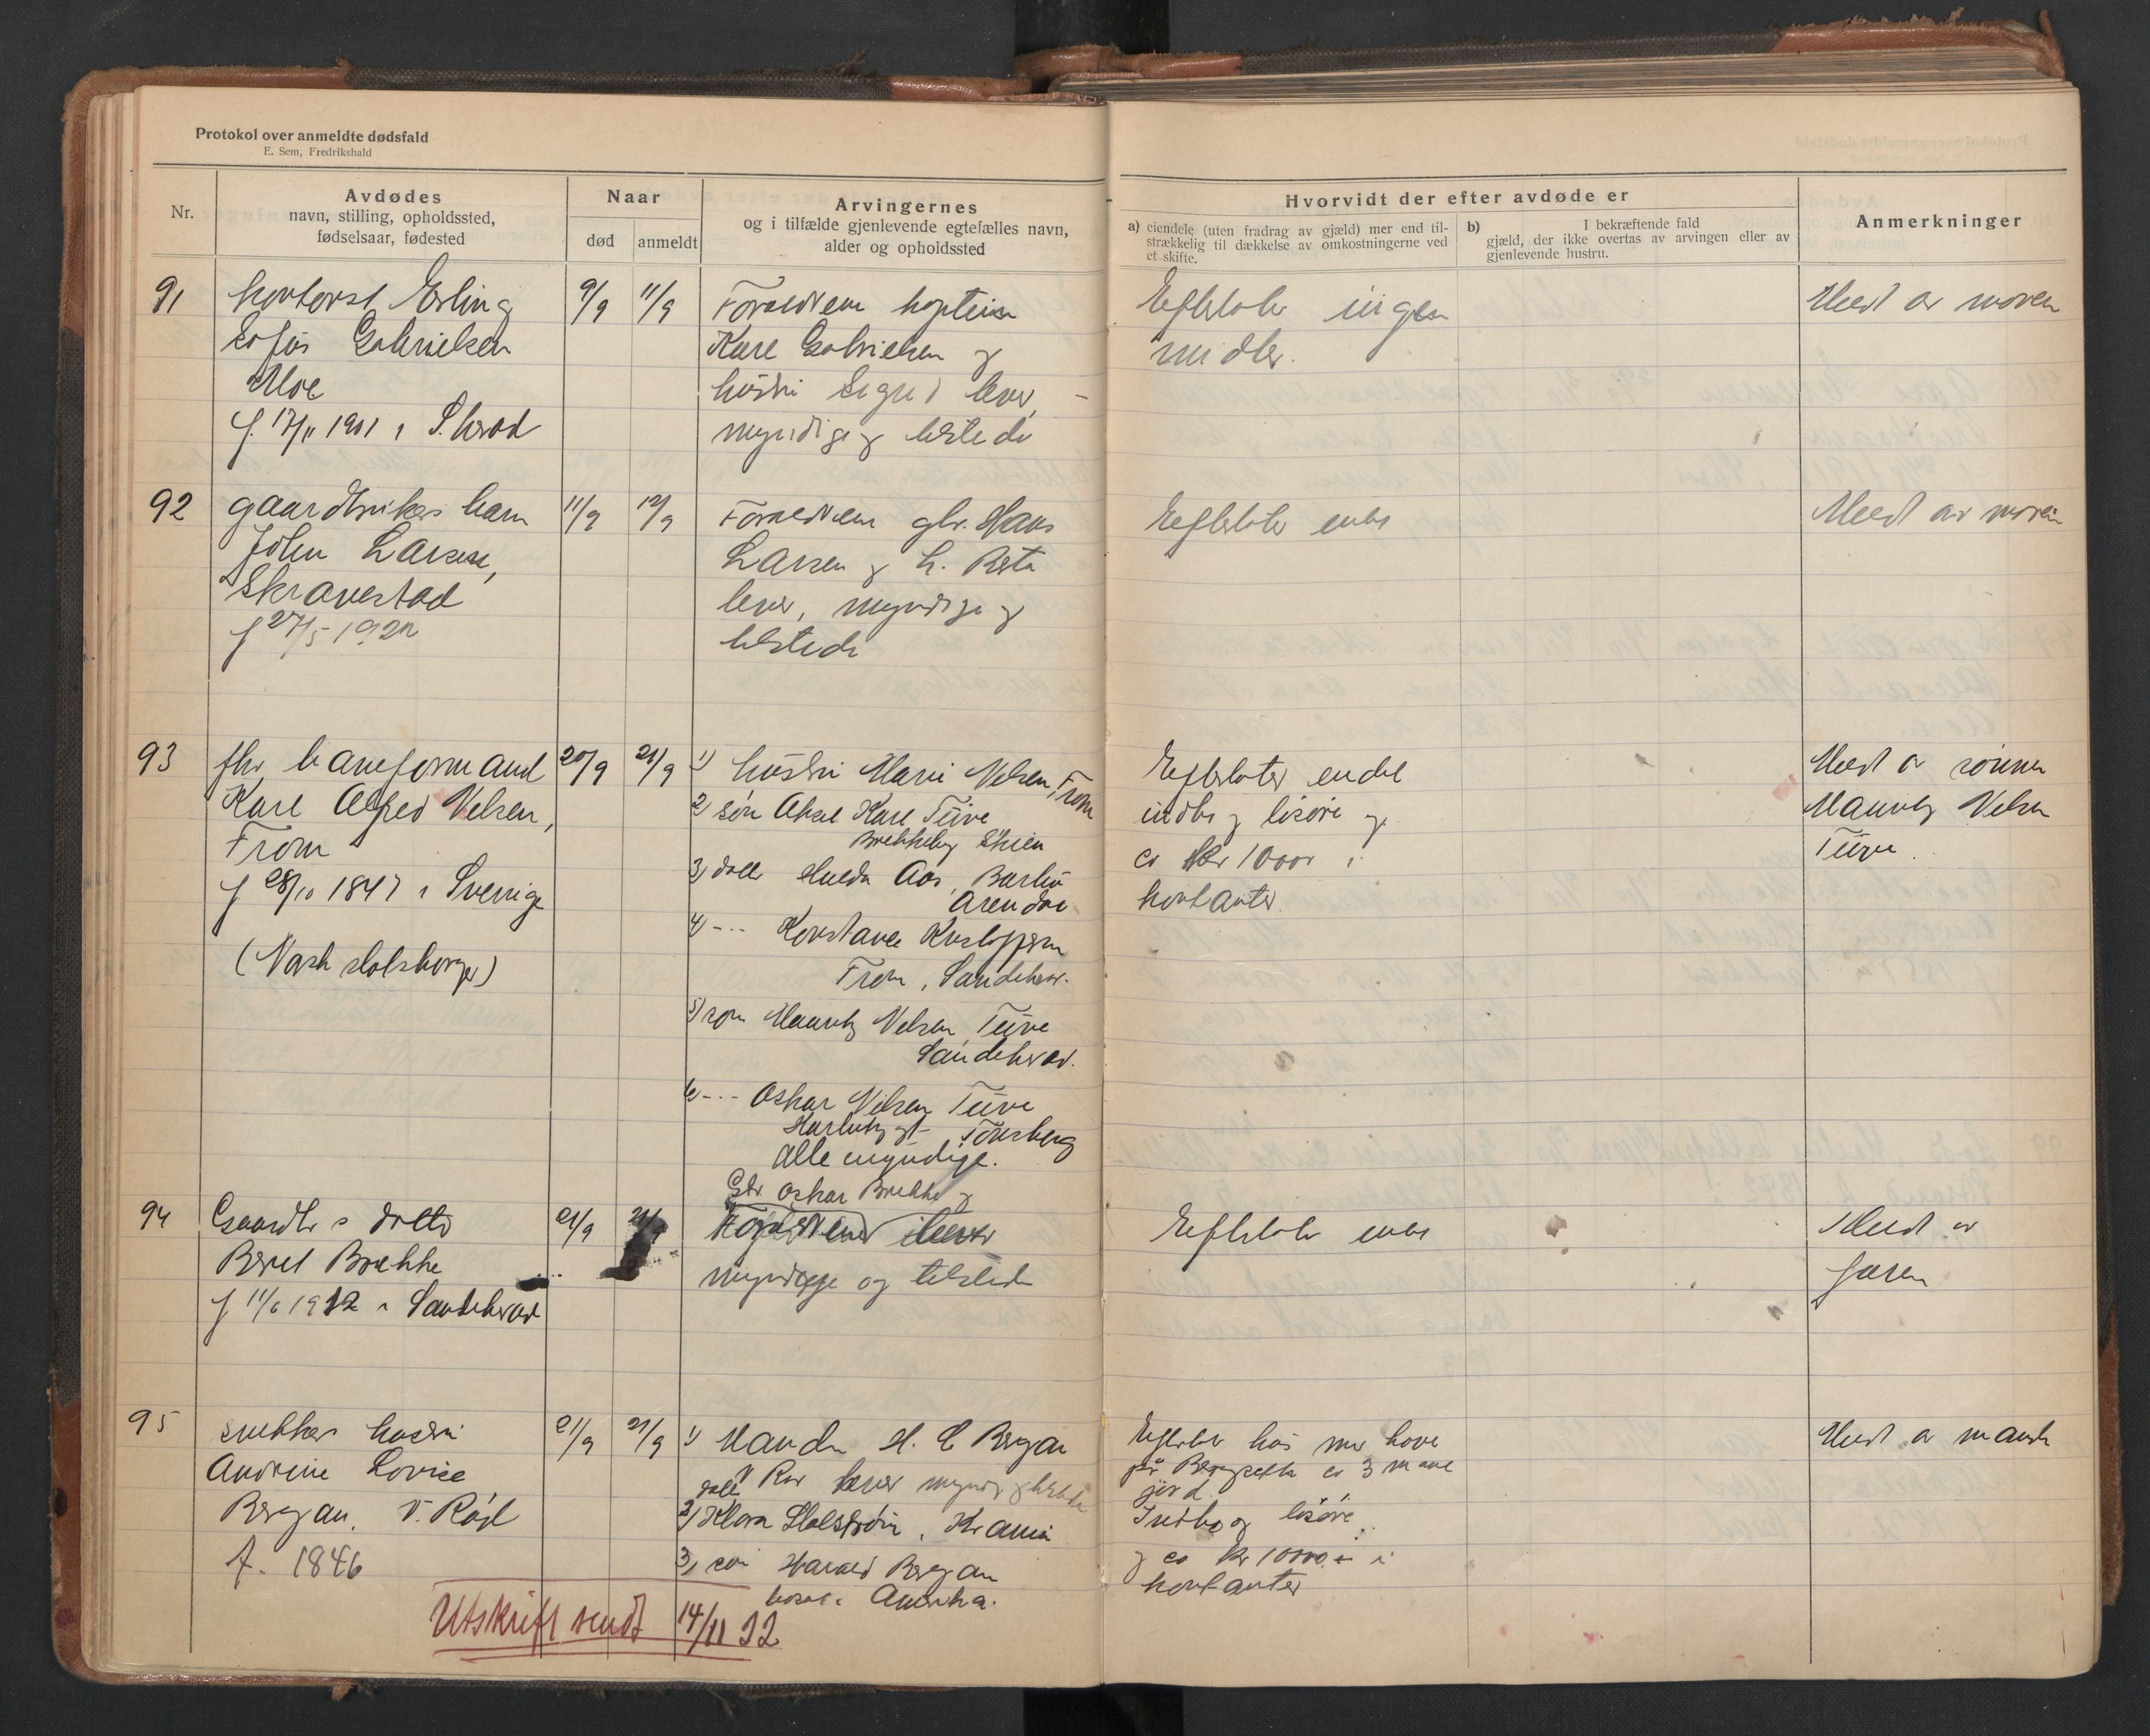 Protokol over anmeldte dødsfald
E. Sem, Fredrikshald
Nr.
Avdødes
navn, stilling, opholdssted,
fødselsaar, fødested
Naar
død
anmeldt
Arvingernes
og i tilfælde gjenlevende egtefælles navn,
alder og opholdssted
Hvorvidt der efter avdøde er
a) eiendele (uten fradrag av gjæld) mer end til-
strækkelig til dækkelse av omkostningerne ved
et skifte.
b) I bekræftende fald
gjæld, der ikke overtas av arvingen eller av
gjenlevende hustru.
Anmerkninger
91
kontorist Erling
Gabrielsen
Moe
f. 17/11 1901 i S.herad
9/9
11/9
Forældrene kaptein
Kare Gabrielsen og
hustru Sigrid lever,
myndige og tilstede
Efterlater ingen
midler.
Meldt av moren
92
gaardbrukers barn
John Larsen,
Skravestad
f 27/5 1922
11/9
12/9
Forældrene gbr. Hans
Larsen og h.
lever, myndige og
tilstede
Efterlater intet
Meldt av moren
93
fhv baneformand
Karl Alfred Nelsen,
From
f 28/10 1847 i Sverrige
(Norsk statsborger)
20/9
21/9
1) hustru Marie Nelsen, From
2) søn Aksel Karl Tüve
Brekkeby Skien
3) datter Hulda Aas, Barbu
Arendal
4) -..- Konstance
From, Sandeherad.
5) søn Mauritz Nelsen Tüve
Sandeherad.
6 -..- Oskar Nelsen Tüve
Tønsberg
alle myndige.
Efterlater endel
indbo og løsøre og
ca kr 1000 i
kontanter.
Meldt av sønnen
Mauritz Nelsen
Tüve.
94
Gaardbr s datter
Beret Brekke
f 11/6 1912 i Sandeherad
21/9
21/9
Gbr. Oskar Brekke og
Forældrene
myndige og tilstede
Efterlater intet
Meldt av
faren
95
snekker hustru
Andrine Lovise
Bergan. V. Råst
f. 1846
21/9
21/9
1) Manden H. C Bergan
lever myndig og tilstede
datter
2) Klara Holstrøm, Kr.ania
3) søn Harald Bergan
bosat i Amerika.
Efterlater hus med have
på ca 3 maal
jord.
Indbo og løsøre
og ca kr 10000.- i
kontanter
Meldt av mand
Utskrift sendt 14/11 22